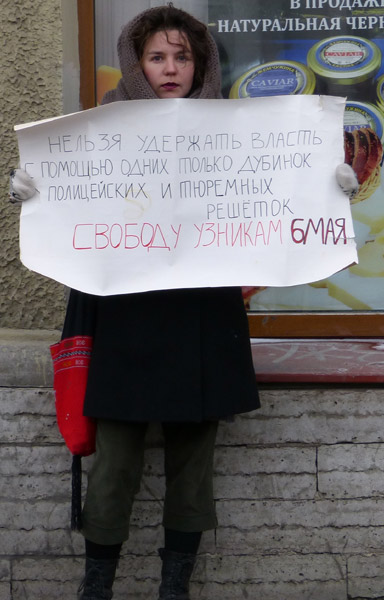 В ПРОДАЖ
НАТУРАЛЬНАЯ ЧЕРН
CAVIAR
CAVIAR
НЕЛЬЗЯ УДЕРЖАТЬ ВЛАСТЬ
С ПОМОЩЬЮ ОДНИХ ТОЛЬКО ДУБИНОК
ПОЛИЦЕЙСКИХ И ТЮРЕМНЫХ
РЕШЁТОК
СВОБОДУ УЗНИКАМ 6МАЯ